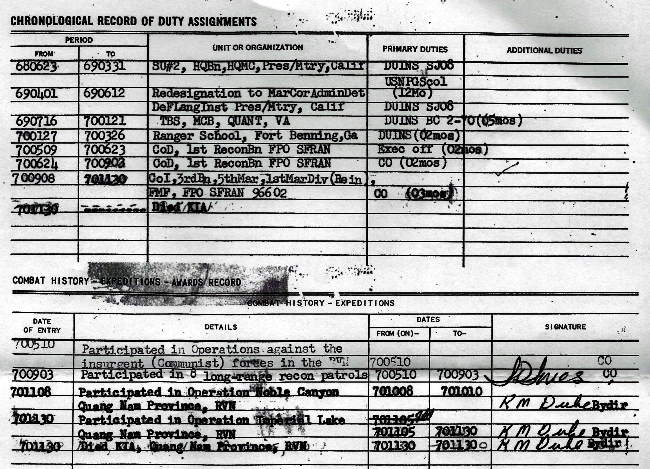 CHRONOLOGICAL RECORD OF DUTY ASSIGNMENTS
PERIOD
FROM TO UNIT OR ORGANIZATION PRIMARY DUTIES ADDITIONAL DUTIES
680623 690331 SU#2, HQBn,HQMC,Pres/Mtry,Calif DUINS SJ08
USNPGScol
690401 690612 Redesignation to MarCorAdminDet (12Mo)
DefLangInst Pres/Mtry, Calif DUINS SJ08
690716 700121 TBS, MCB, QUANT, VA DUINS BC 2-70(05mos)
700127 700326 Ranger School, Fort Benning,Ga DUINS(02mos)
700509 700623 CoD, 1st ReconBn FPO SFRAN Exec off (02mos)
700624 700902 CoD, 1st ReconBn FPO SFRAN CO (02mos)
700908 701130 CoI,3rdBn,5thMar,1stMarDiv(Rein),
FMF, FPO SFRAN 96602 CO (03mos)
701130 --------- Died KIA
COMBAT HISTORY - EXPEDITIONS - AWARDS RECORD
COMBAT HISTORY - EXPEDITIONS
DATE OF ENTRY DETAILS DATES SIGNATURE
FROM (ON)- TO-
700510 Participated in Operations against the
insurgent (Communist) forces in the RVN 700510 CO
700903 Participated in 8 long-range recon patrols 700510 700903 CO
701108 Participated in Operation Noble Canyon 701008 701010
Quang Nam Province, RVN K M Duke Bydir
701130 Participated in Operation Imperial Lake
Quang Nam Province, RVN 701105 701130 K M Duke Bydir
701130 Died KIA, Quang Nam Province, RVN 701130 701130 K M Duke Bydir